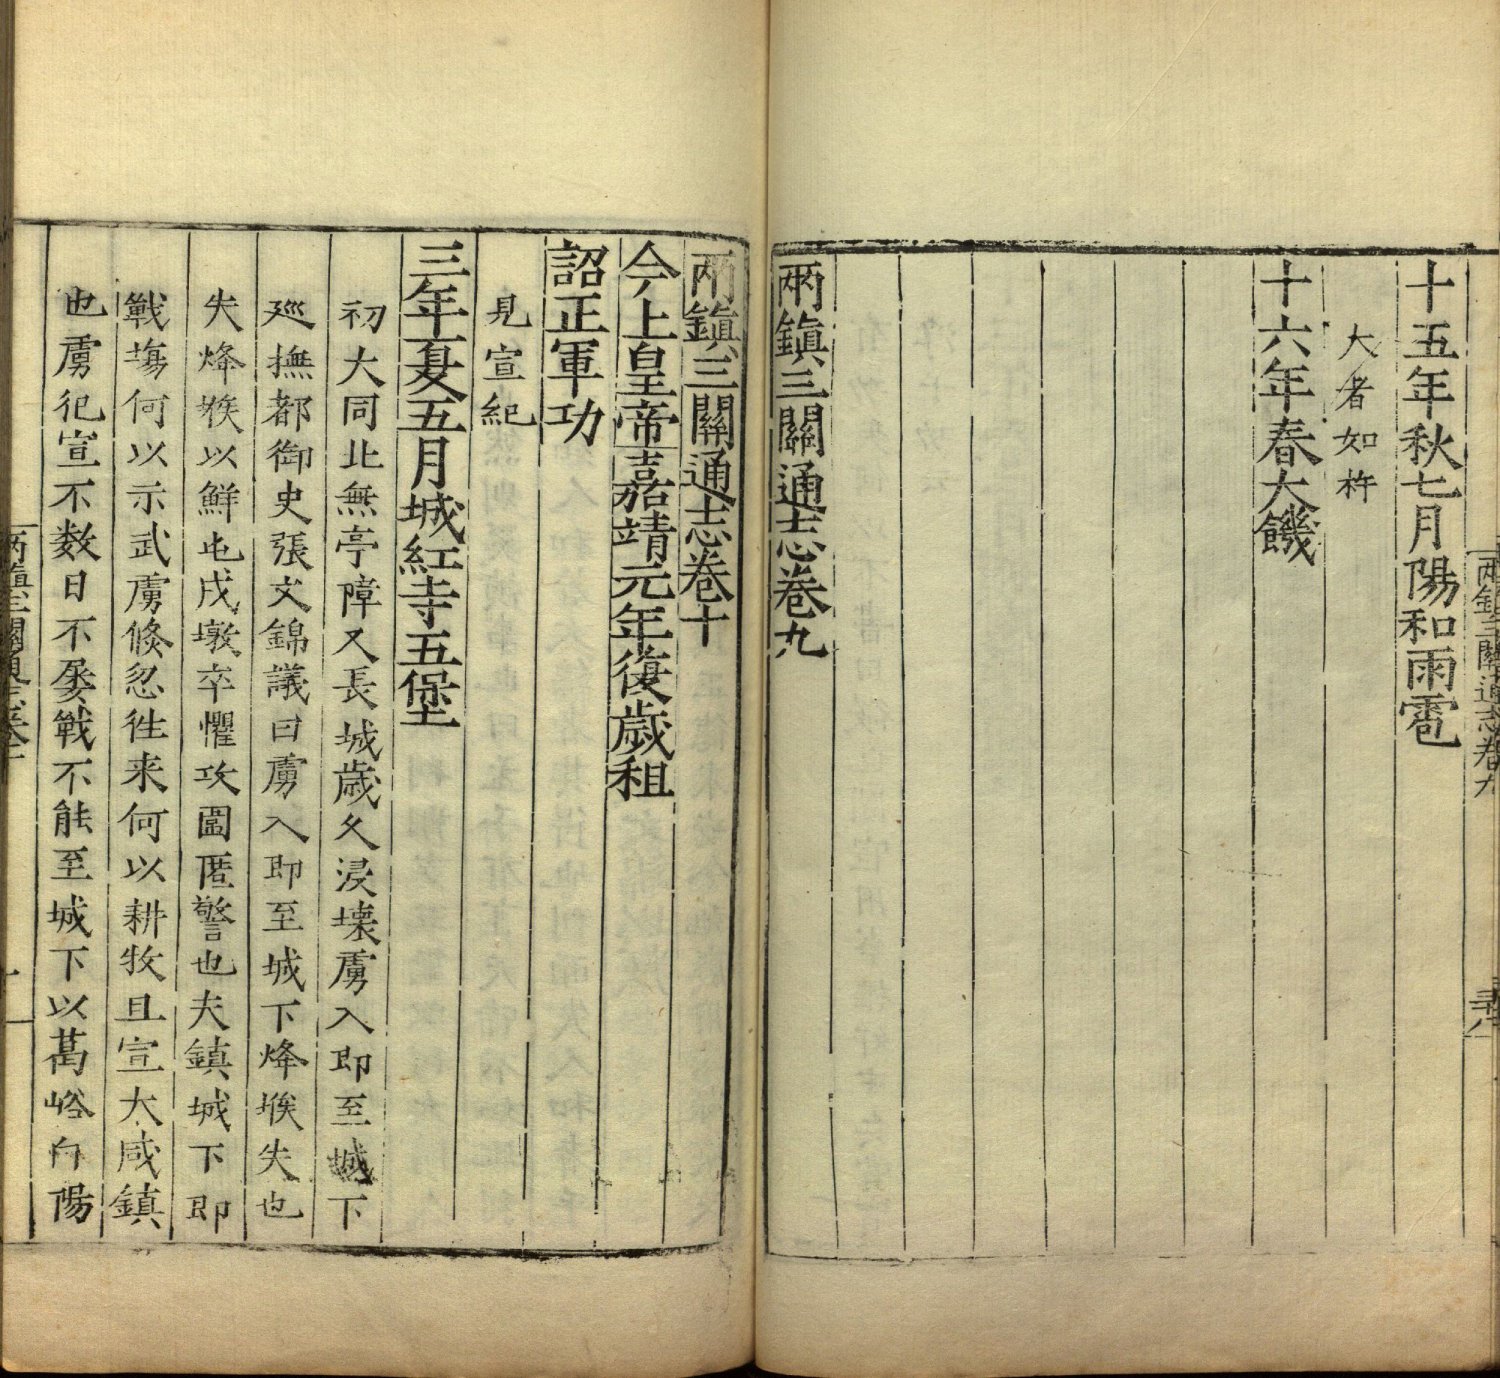 兩鎮三關通志卷九
十五年秋七月陽和雨雹
大者如杵
十六年春大饑
兩鎮三關通志卷九
兩鎮三關通志卷十
今上皇帝嘉靖元年復歲租
詔正軍功
見宣紀
三年夏五月城紅寺五堡
初大同北無亭障又長城歲久浸壞虜入即至城下
廵撫都御史張文錦議曰虜入即至城下烽堠失也
失烽堠以鮮屯戍墩卒懼攻圍匿警也夫鎮城下即
戰塲何以示武虜倐忽徃来何以耕牧且宣大咸鎮
也虜犯宣不数日不屡戰不能至城下以葛峪白陽